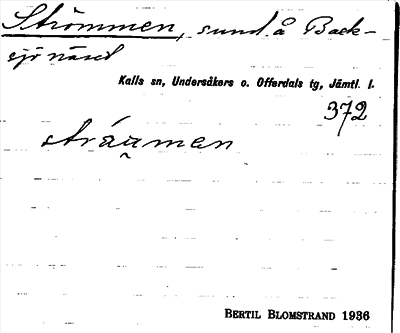 Strömmen, sund å Back-
sjönäset
Kalls sn, Undersåkers o. Offerdals tg, Jämtl. l.
372
stráu̯man
BERTIL BLOMSTRAND 1936